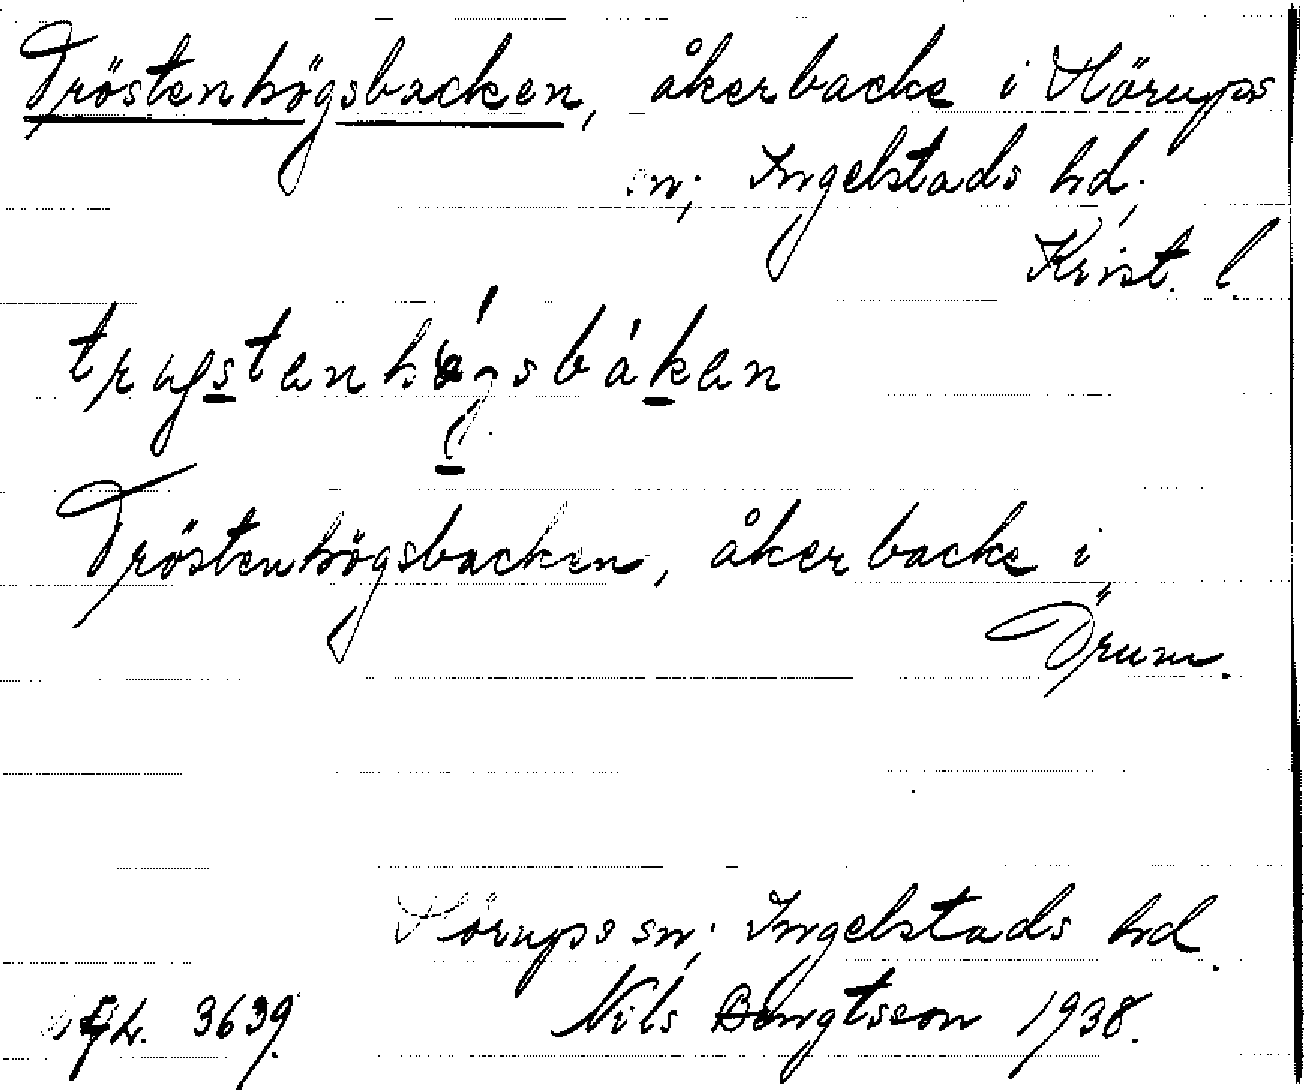 Tröstenhögsbacken, åkerbacke i Hörups
sn; Ingelstads hd.
Krist. l.
Tröstenhögsbacken, åkerbacke i
Örum.
Hörups sn; Ingelstads hd.
3639. Nils Bengtsson 1938.